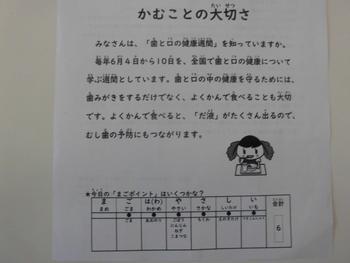 かむことの大切さ
みなさんは、「歯と口の健康週間」を知っていますか。
毎年6月4日から10日を、全国で歯と口の健康について
学ぶ週間としています。歯と口の中の健康を守るためには、
歯みがきをするだけでなく、よくかんで食べることも大切
です。よくかんで食べると、「だ液」がたくさん出るので、
むし歯の予防にもつながります。
★今日の「まごポイント」はいくつかな?
ま ご は(わ) や さ し い 合計
まめ ごま わかめ やさい さかな しいたけ いも
● ● ● ● ● ●
ごま ごぼう
にんじん
ねぎ
こまつな
6